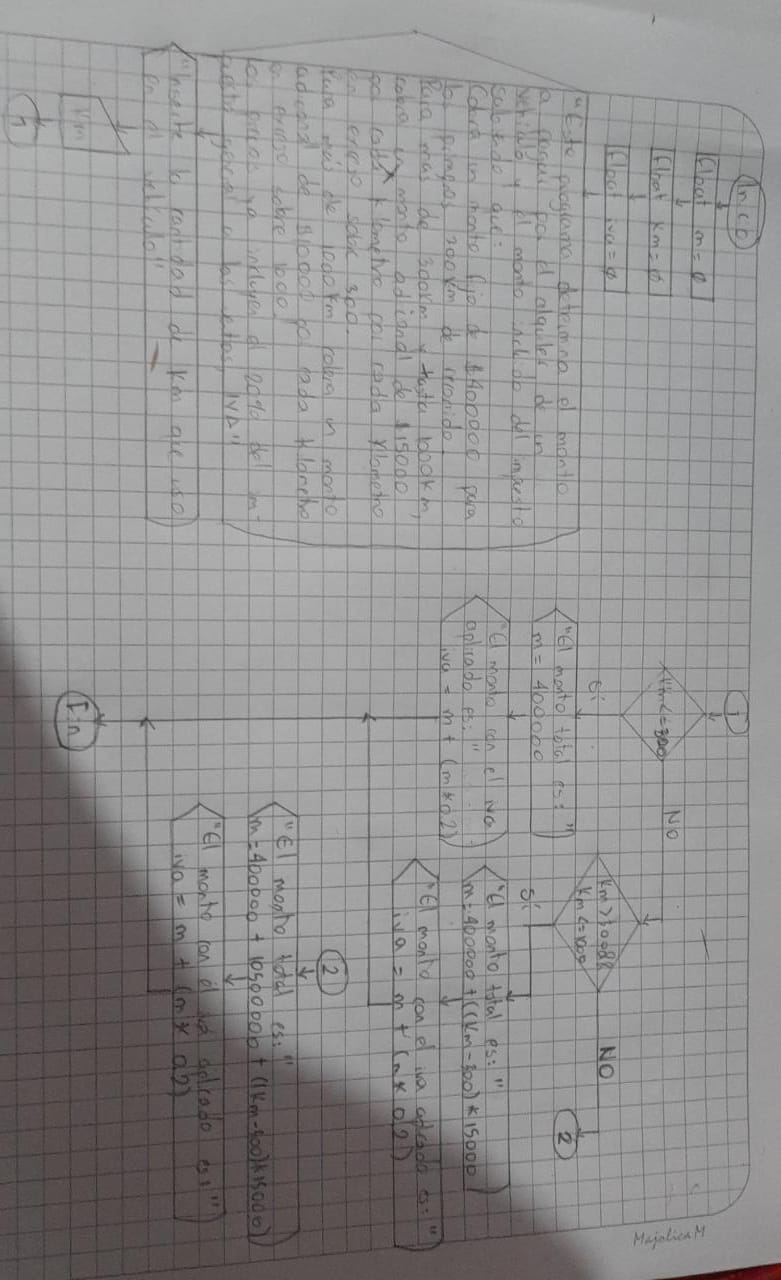 Inicio
float m = 0
float km = 0
float iva = 0
"Este programa determina el monto
a pagar por el alquiler de un
vehículo y el monto incluido del impuesto
sabiendo que:
Cobra un monto fijo de $400000 para
los primeros 300km de recorrido.
Para mas de 300km y hasta 1000km,
cobra un monto adicional de $15000
por cada kilometro por cada kilometro
en exceso sobre 300.
Para más de 1000km cobra un monto
adicional de $10000 por cada kilometro
en exceso sobre 1000.
Los precios ya incluyen el 20% del im-
puesto general a las ventas, IVA"
"Inserte la cantidad de km que uso
en el vehículo"
km
1
1
km<=300
Sí
NO
"El monto total es: "
m = 400000
"El monto con el iva
aplicado es: "
iva = m + (m * 0.2)
km>300&&
km<=1000
Sí
NO
2
"El monto total es: "
m=400000+((km-300)*15000
"El monto con el iva aplicado es: "
iva = m + (m * 0.2)
2
"El monto total es: "
m=400000 + 10500000 + ((km-300)*15000)
"El monto con el iva aplicado es: "
iva = m + (m * 0.2)
Fin
MajolicaM